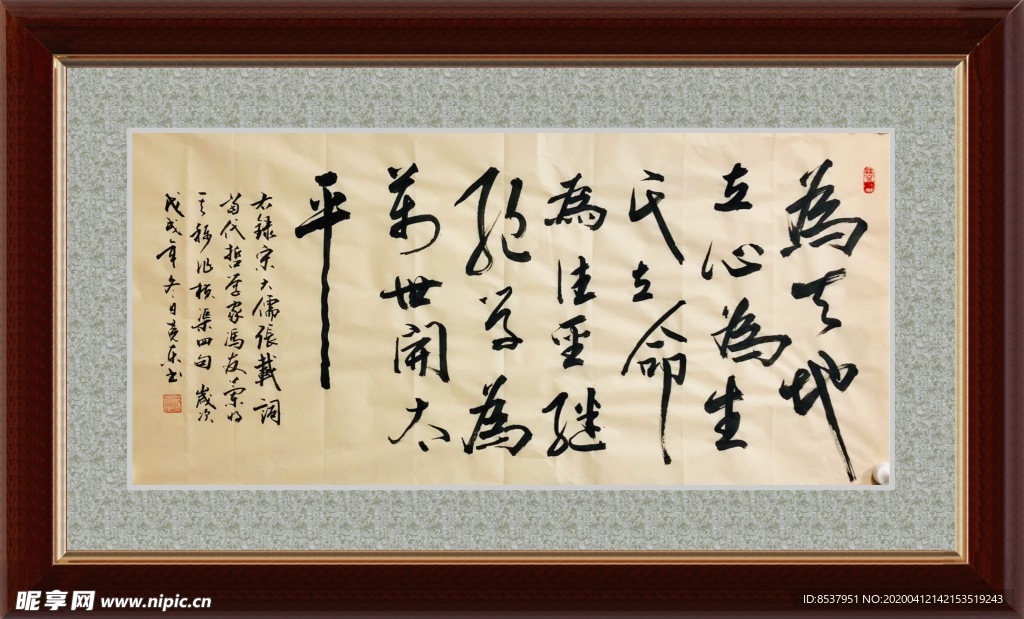 為天地
立心為生
民立命
為往聖繼
絕學為
萬世開太
平
右錄宋大儒張載詞
當代哲學家馮友蘭將
其稱作橫渠四句 歲次
戊戌年冬日書
昵享网 www.nipic.cn
ID:8537951 NO:20200412142153519243